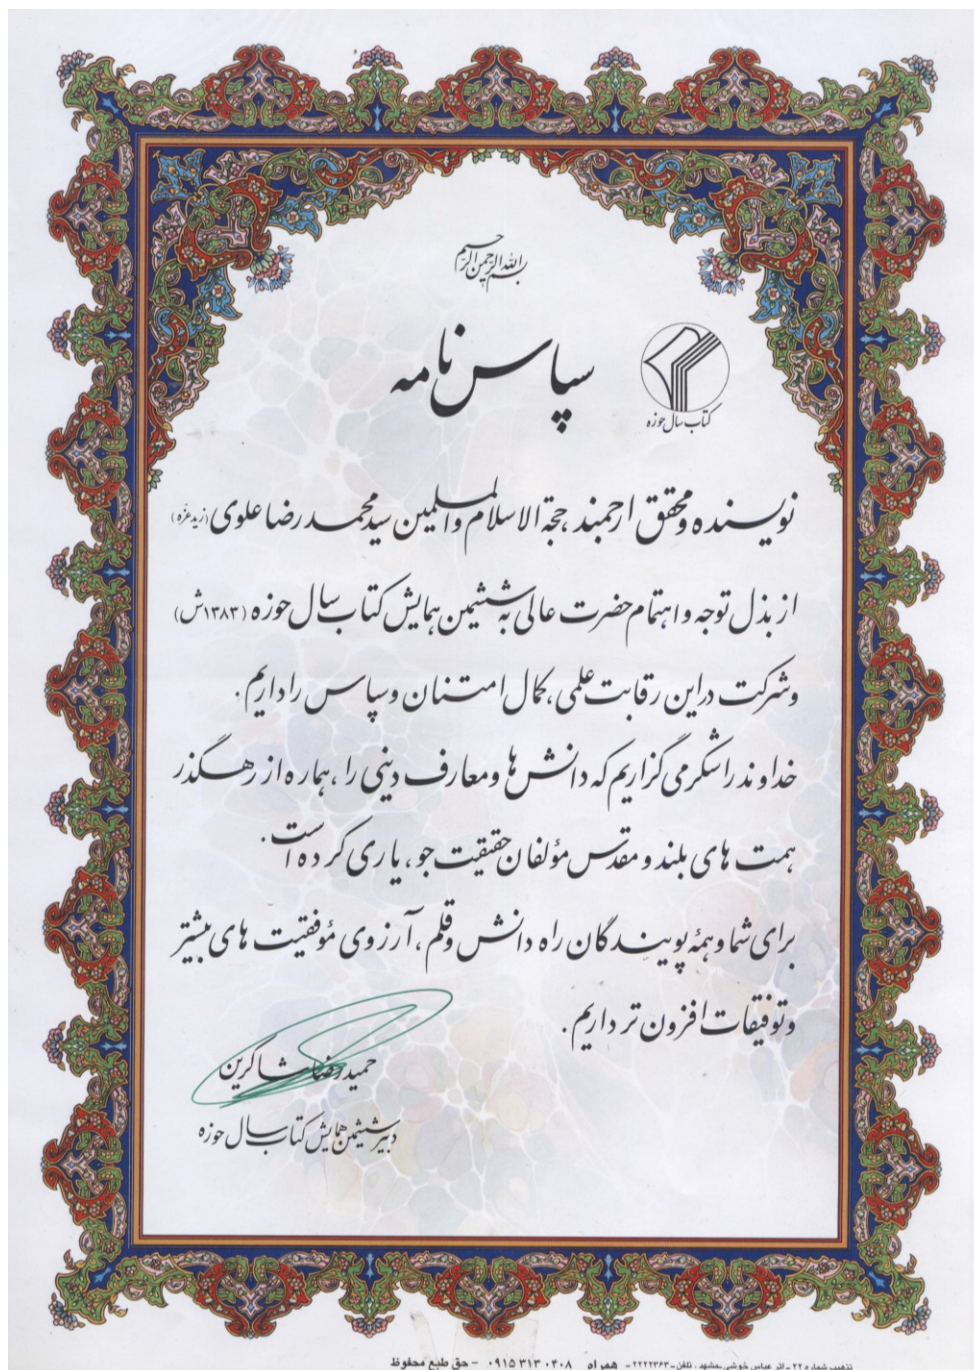 بسم الله الرحمن الرحیم
سپاس نامه
کتاب سال حوزه
نویسنده و محقق ارجمند، حجة الاسلام والمسلمین سید محمد رضا علوی (زید عزّه)
از بذل توجه و اهتمام حضرت عالی به ششمین همایش کتاب سال حوزه (۱۳۸۳ش)
و شرکت در این رقابت علمی، کمال امتنان و سپاس را داریم.
خداوند را شکر می گزاریم که دانش ها و معارف دینی را، هماره از رهگذر
همت های بلند و مقدس مؤلفان حقیقت جو، یاری کرده است.
برای شما و همه پویندگان راه دانش و قلم، آرزوی مؤفقیت های بیشتر
و توفیقات افزون تر داریم.
حمیدرضا شاکرین
دبیر ششمین همایش کتاب سال حوزه
تذهیب شماره ۲۲ - اثر عباس خوشی - مشهد، تلفن - ۲۲۲۲۳۶۳ - همراه ۰۴۰۸ ۳۱۳ ۰۹۱۵ - حق طبع محفوظ